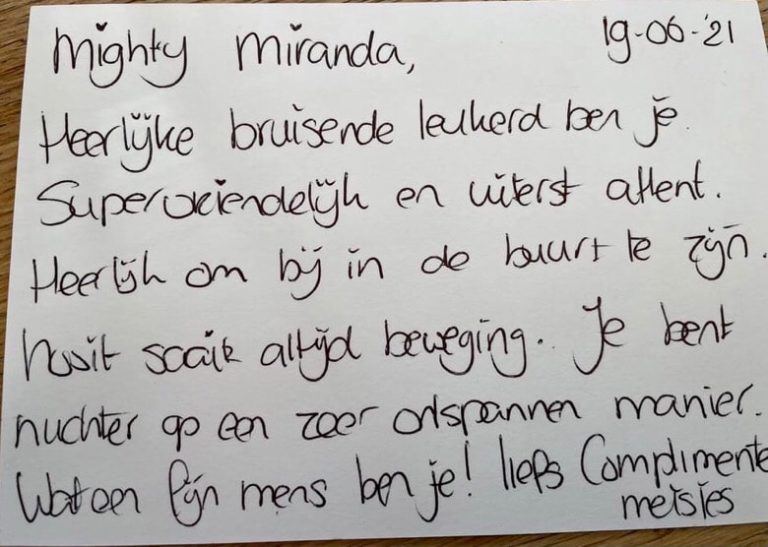 Mighty Miranda, 19-06-'21
Heerlijke bruisende leukerd ben je.
Supervriendelijk en uiterst attent.
Heerlijk om bij in de buurt te zijn.
Nooit saai altijd beweging. Je bent
nuchter op een zeer ontspannen manier.
Wat een fijn mens ben je! liefs Complimente
meisjes